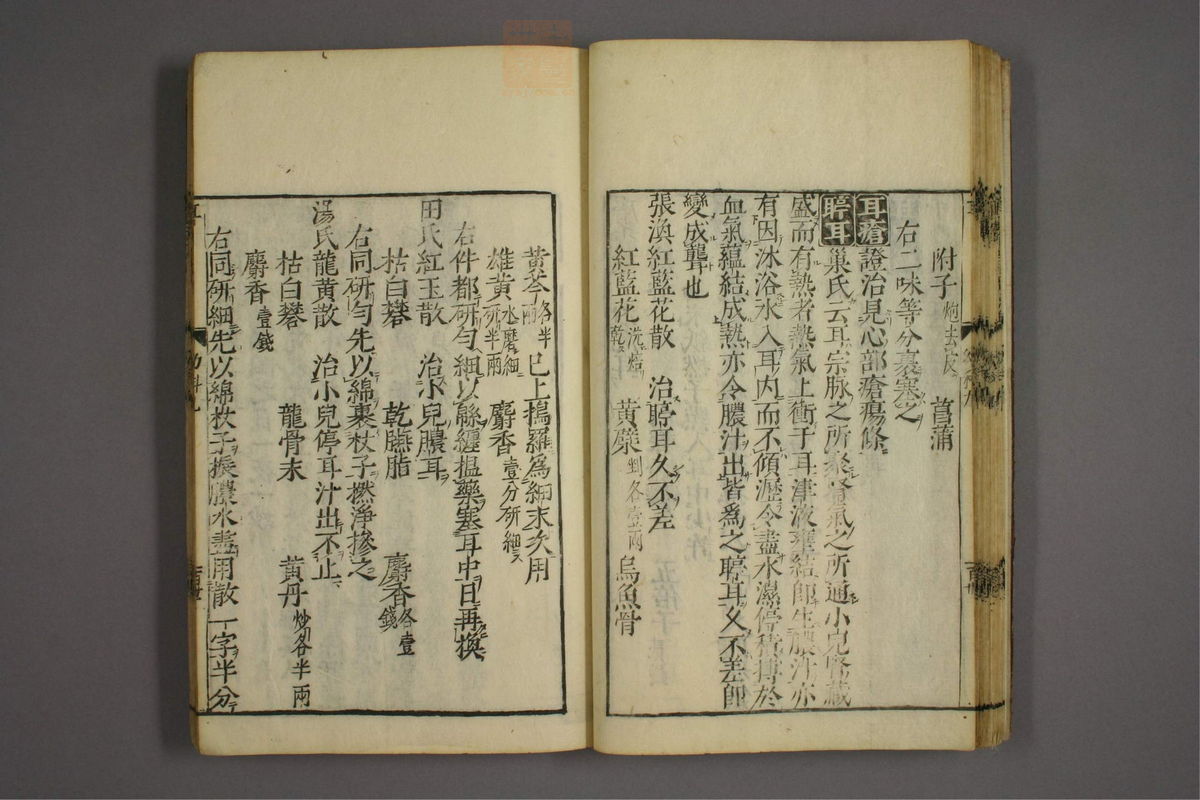 附子炮去皮　菖蒲
右二味等分裹塞之
耳瘡證治見心部瘡瘍條
聤耳巢氏云耳宗脉之所聚腎氣之所通小兒腎藏
盛而有熱者熱氣上衝于耳津液壅結即生膿汁亦
有因沐浴水入耳内而不傾瀝令盡水濕停積搏於
血氣蘊結成熱亦令膿汁出皆爲之聤耳久不差即
變成聾也
張渙紅藍花散　治聤耳久不差
紅藍花洗焙乾　黄蘗剉各壹兩　烏魚骨
黄芩各半兩　已上搗羅爲細末次用
雄黄水磨細研半兩　麝香壹分研細
右件都研勻細以緜纏揾藥塞耳中日再換
田氏紅玉散　治小兒膿耳
枯白礬　乾臙脂　麝香各壹錢
右同研勻先以綿裹杖子撚淨摻之
湯氏龍黄散　治小兒停耳汁出不止
枯白礬　龍骨末　黄丹炒各半兩
麝香壹錢
右同研細先以綿杖子捩膿水盡用散一字半分